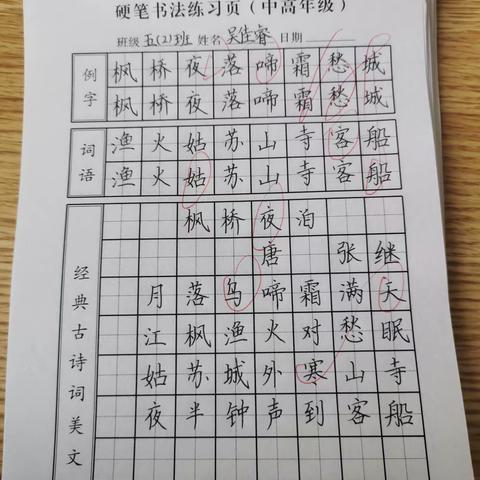 硬笔书法练习页（中高年级）
班级 五(2)班 姓名 吴佳睿 日期
例字
枫桥夜落啼霜愁城
枫桥夜落啼霜愁城
词语
渔火姑苏山寺客船
渔火姑苏山寺客船
经典古诗词美文
枫桥夜泊
唐 张继
月落鸟啼霜满天
江枫渔火对愁眠
姑苏城外寒山寺
夜半钟声到客船